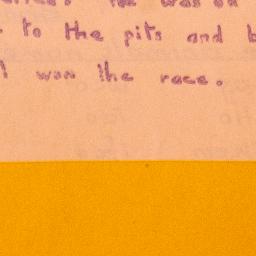 was on
to the pits and
won the race.